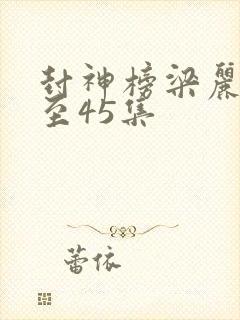 封神榜梁麗
至45集
蕾依